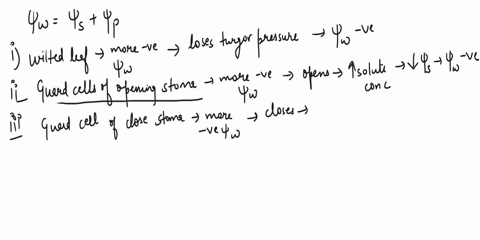 Ψw = Ψs + Ψp
i) wilted leaf → more -ve Ψw → loses turgor pressure → Ψw -ve
ii Guard cells of opening stome → more -ve Ψw → opens → ↑ solute conc → ↓ Ψs → Ψw -ve
iii Guard cell of close stome → more -ve Ψw → closes →